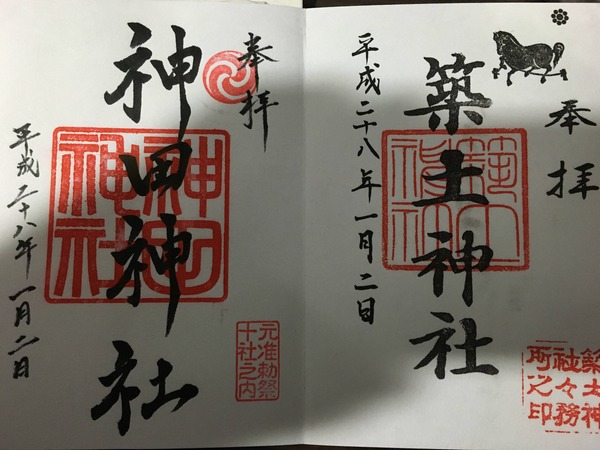 奉拝
築土神社
平成二十八年一月二日
築土神
社々務
所之印
奉拝
神田神社
神田
神社
元准勅祭
十社之内
平成二十八年一月二日